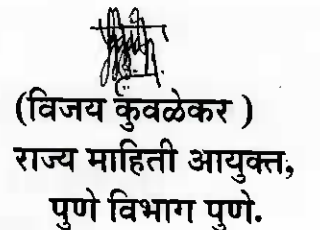 (विजय कुवळेकर )
राज्य माहिती आयुक्त,
पुणे विभाग पुणे.